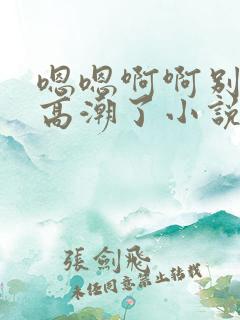 嗯嗯啊啊别
高潮了小説
張劍飛
未经同意禁止转载